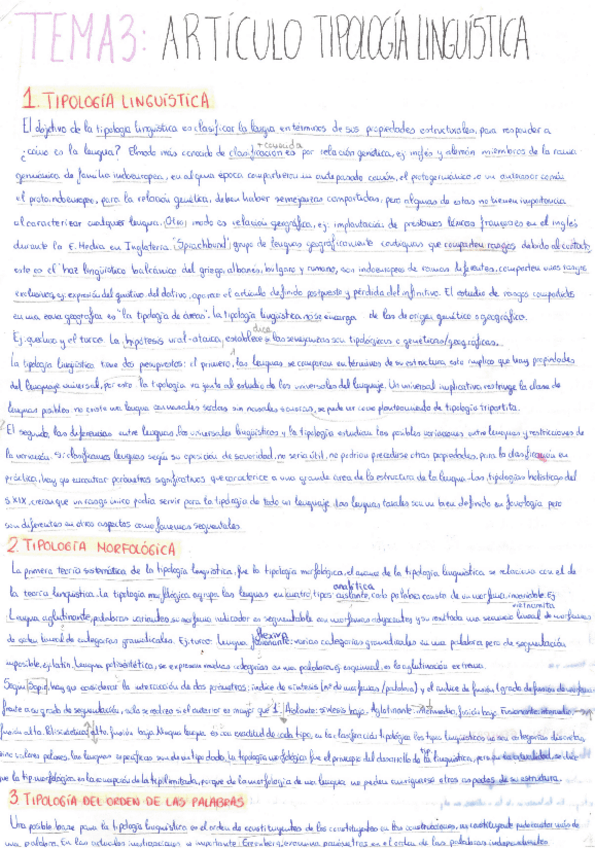 TEMA3: ARTÍCULO TIPOLOGÍA LINGUÍSTICA
1. TIPOLOGÍA LINGUÍSTICA
El objetivo de la tipología lingüística es clasificar la lengua en términos de sus propiedades estructurales, para responder a
¿cómo es la lengua? El modo más conocido de clasificación es por relación genética, ej inglés y alemán miembros de la rama
+ conocida
germánica de familia indoeuropea, en alguna época compartieron un antepasado común, el protogermánico o un antecesor común
el protoindoeuropeo, para la relación genética, deben haber semejanzas compartidas, pero algunas de estas no tienen importancia
al caracterizar cualquier lengua. Otro modo es relación geográfica, ej: implantación de préstamos léxicos franceses en el inglés
durante la E. Media en Inglaterra. "Sprachbund", grupo de lenguas geográficamente contiguas que comparten rasgos debido al contacto,
esto es el "haz lingüístico balcánico del griego, albanés, búlgaro y rumano, son indoeuropeas de ramas diferentes, comparten unos rasgos
exclusivos, ej: expresión del genitivo del dativo, aparece el artículo definido postpuesto y pérdida del infinitivo. El estudio de rasgos compartidos
en una zona geográfica es "la tipología de áreas". La tipología lingüística no se encarga de las de origen genético o geográfico.
Ej: quechua y el turco. La hipótesis ural-altaica, establece si las semejanzas son tipológicas o genéticas/geográficas.
La tipología lingüística tiene dos presupuestos: el primero, las lenguas se comparan en términos de su estructura, esto implica que hay propiedades
del lenguaje universal, por esto la tipología va junto al estudio de los universales del lenguaje. Un universal implicativo, restringe la clase de
lenguas posibles no existe una lengua con nasales sordas sin nasales sonoras, se puede ver como planteamiento de tipología tripartita.
El segundo, las diferencias entre lenguas, los universales lingüísticos y la tipología estudian las posibles variaciones entre lenguas y restricciones de
la variación. Si clasificamos lenguas según su oposición de sonoridad, no sería útil, no podrían predecirse otras propiedades, para la clasificación en
práctica, hay que encontrar parámetros significativos que caracterice a una grande área de la estructura de la lengua. Las tipologías holísticas del
s XIX, creían que un rasgo único podía servir para la tipología de todo un lenguaje. Las lenguas tonales son un bien definido en fonología pero
son diferentes en otros aspectos como fonemas segmentales.
2. TIPOLOGÍA MORFOLÓGICA
La primera teoría sistemática de la tipología lingüística, fue la tipología morfológica, el avance de la tipología lingüística se relaciona con el de
la teoría lingüística. La tipología morfológica agrupa las lenguas en cuatro tipos: aislante, cada palabra consta de un morfema, invariable. Ej.
analítica
vietnamita
Lengua aglutinante, palabras variables, su morfema indicador es segmentable en morfemas y su resultado una secuencia lineal de morfemas
de orden lineal de categorías gramaticales. Ej. turco. Lengua fusionante: varias categorías gramaticales en una palabra pero de segmentación
flexiva
imposible, ej latín. Lengua polisintética, se expresan muchas categorías en una palabra, Ej esquimal, es la aglutinación extrema.
Según Sapir, hay que considerar la interacción de dos parámetros: índice de síntesis (nº de morfemas/palabra) y el índice de fusión (grado de fusión de
frente a su grado de segmentación, solo se indica si el anterior es mayor que 1. Aislante: síntesis baja. Aglutinante: intermedia, fusión baja. Fusionante: intermedia,
fusión alta. Polisintética: alta, fusión baja. Ninguna lengua es con exactitud de cada tipo, en la clasificación tipológica los tipos lingüísticos no son categorías discretas
sino valores polares, las lenguas específicas son de un tipo dado. La tipología morfológica fue el principio del desarrollo de la lingüística, pero en la actualidad, se dice
que la tip morfológica es la ocupación de la tipología limitada, porque de la morfología de una lengua no pueden averiguarse otros aspectos de su estructura.
3 TIPOLOGÍA DEL ORDEN DE LAS PALABRAS
Una posible base para la tipología lingüística es el orden de constituyentes de los constituyentes en las construcciones, un constituyente puede constar más de
una palabra. En las es importante. Greenberg, enumera parámetros en el orden de las palabras independientes.